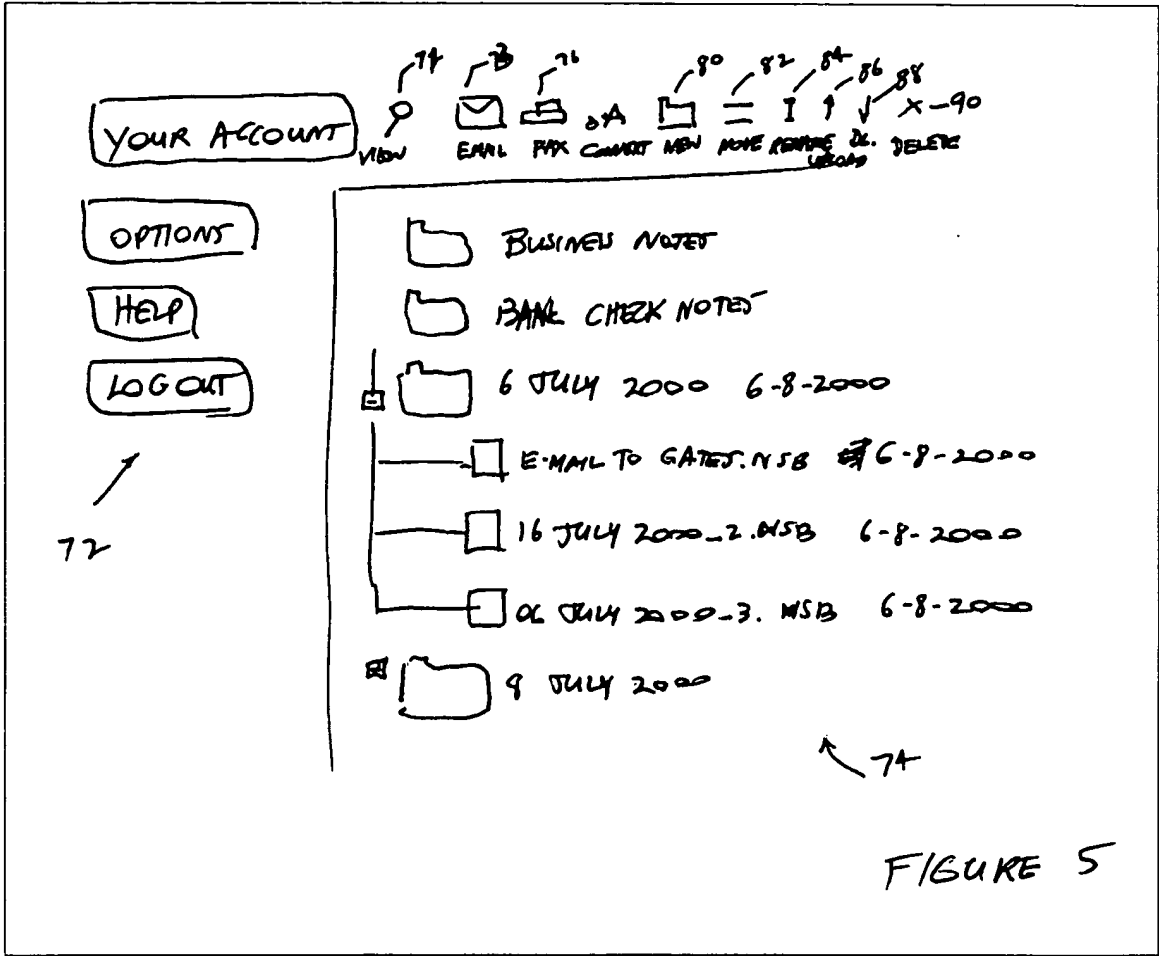 74 73 76 80 82 84 86 88
YOUR ACCOUNT
X-90
VIEW EMAIL FAX CONVERT NEW MOVE RENAME DL. DELETE
UPLOAD
OPTIONS
BUSINESS NOTES
HELP
BANK CHECK NOTES
LOGOUT
6 JULY 2000 6-8-2000
E-MAIL TO GATES.NSB 6-8-2000
72
16 JULY 2000_2.NSB 6-8-2000
06 JULY 2000_3.NSB 6-8-2000
9 JULY 2000
74
FIGURE 5